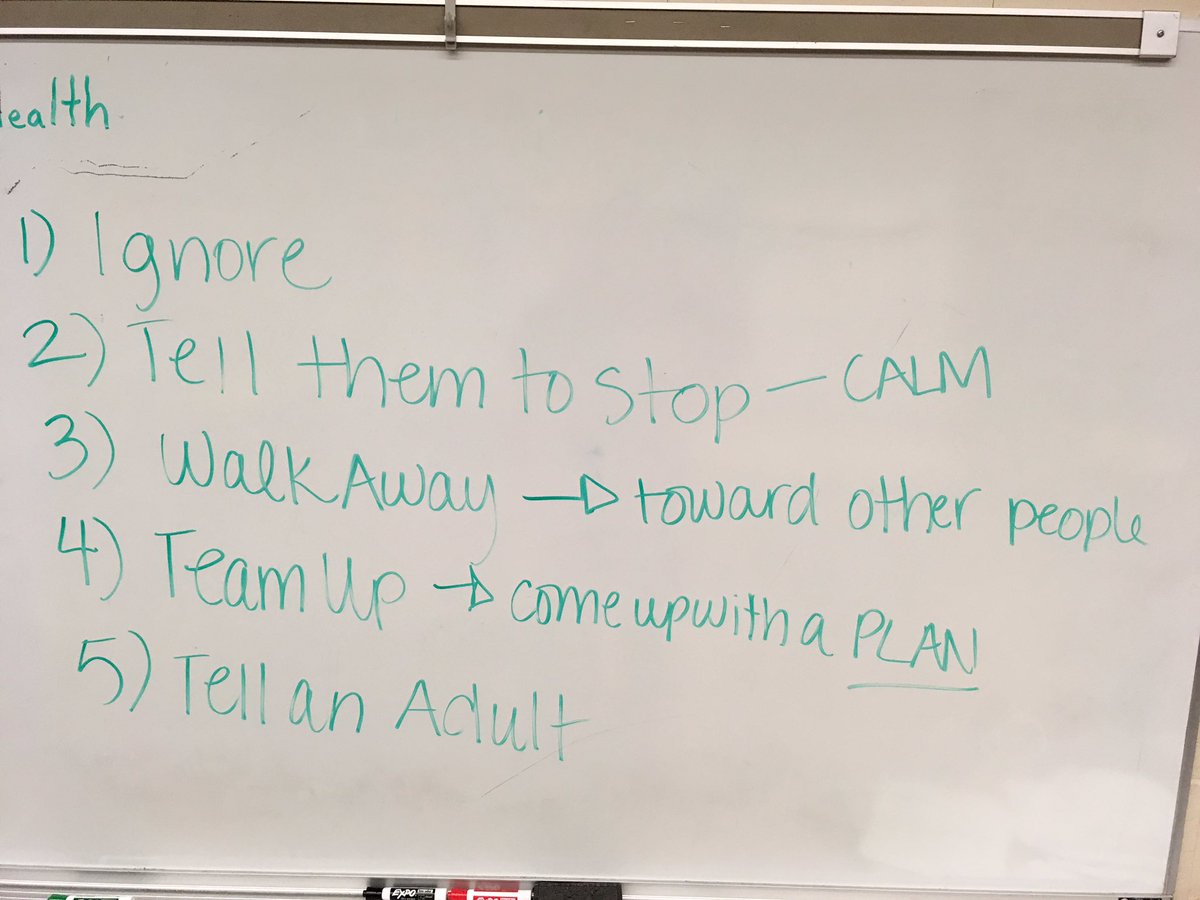 ealth
1) Ignore
2) Tell them to stop — CALM
3) Walk Away → toward other people
4) Team Up → come up with a PLAN
5) Tell an Adult
EXPO